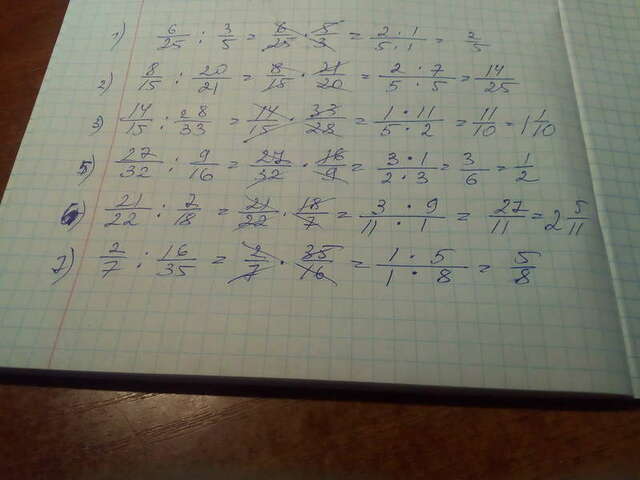 1) 6/25 : 3/5 = 6/25 · 5/3 = 2 · 1/5 · 1 = 2/5
2) 8/15 : 20/21 = 8/15 · 21/20 = 2 · 7/5 · 5 = 14/25
3) 14/15 : 28/33 = 14/15 · 33/28 = 1 · 11/5 · 2 = 11/10 = 1 1/10
5) 27/32 : 9/16 = 27/32 · 16/9 = 3 · 1/2 · 3 = 3/6 = 1/2
6) 21/22 : 7/18 = 21/22 · 18/7 = 3 · 9/11 · 1 = 27/11 = 2 5/11
7) 2/7 : 16/35 = 2/7 · 35/16 = 1 · 5/1 · 8 = 5/8